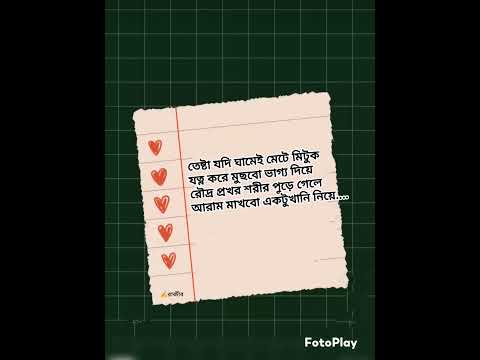 তেষ্টা যদি ঘামেই মেটে মিটুক
যত্ন করে মুছবো ভাগ্য দিয়ে
রৌদ্র প্রখর শরীর পুড়ে গেলে
আরাম মাখবো একটুখানি নিয়ে....
FotoPlay